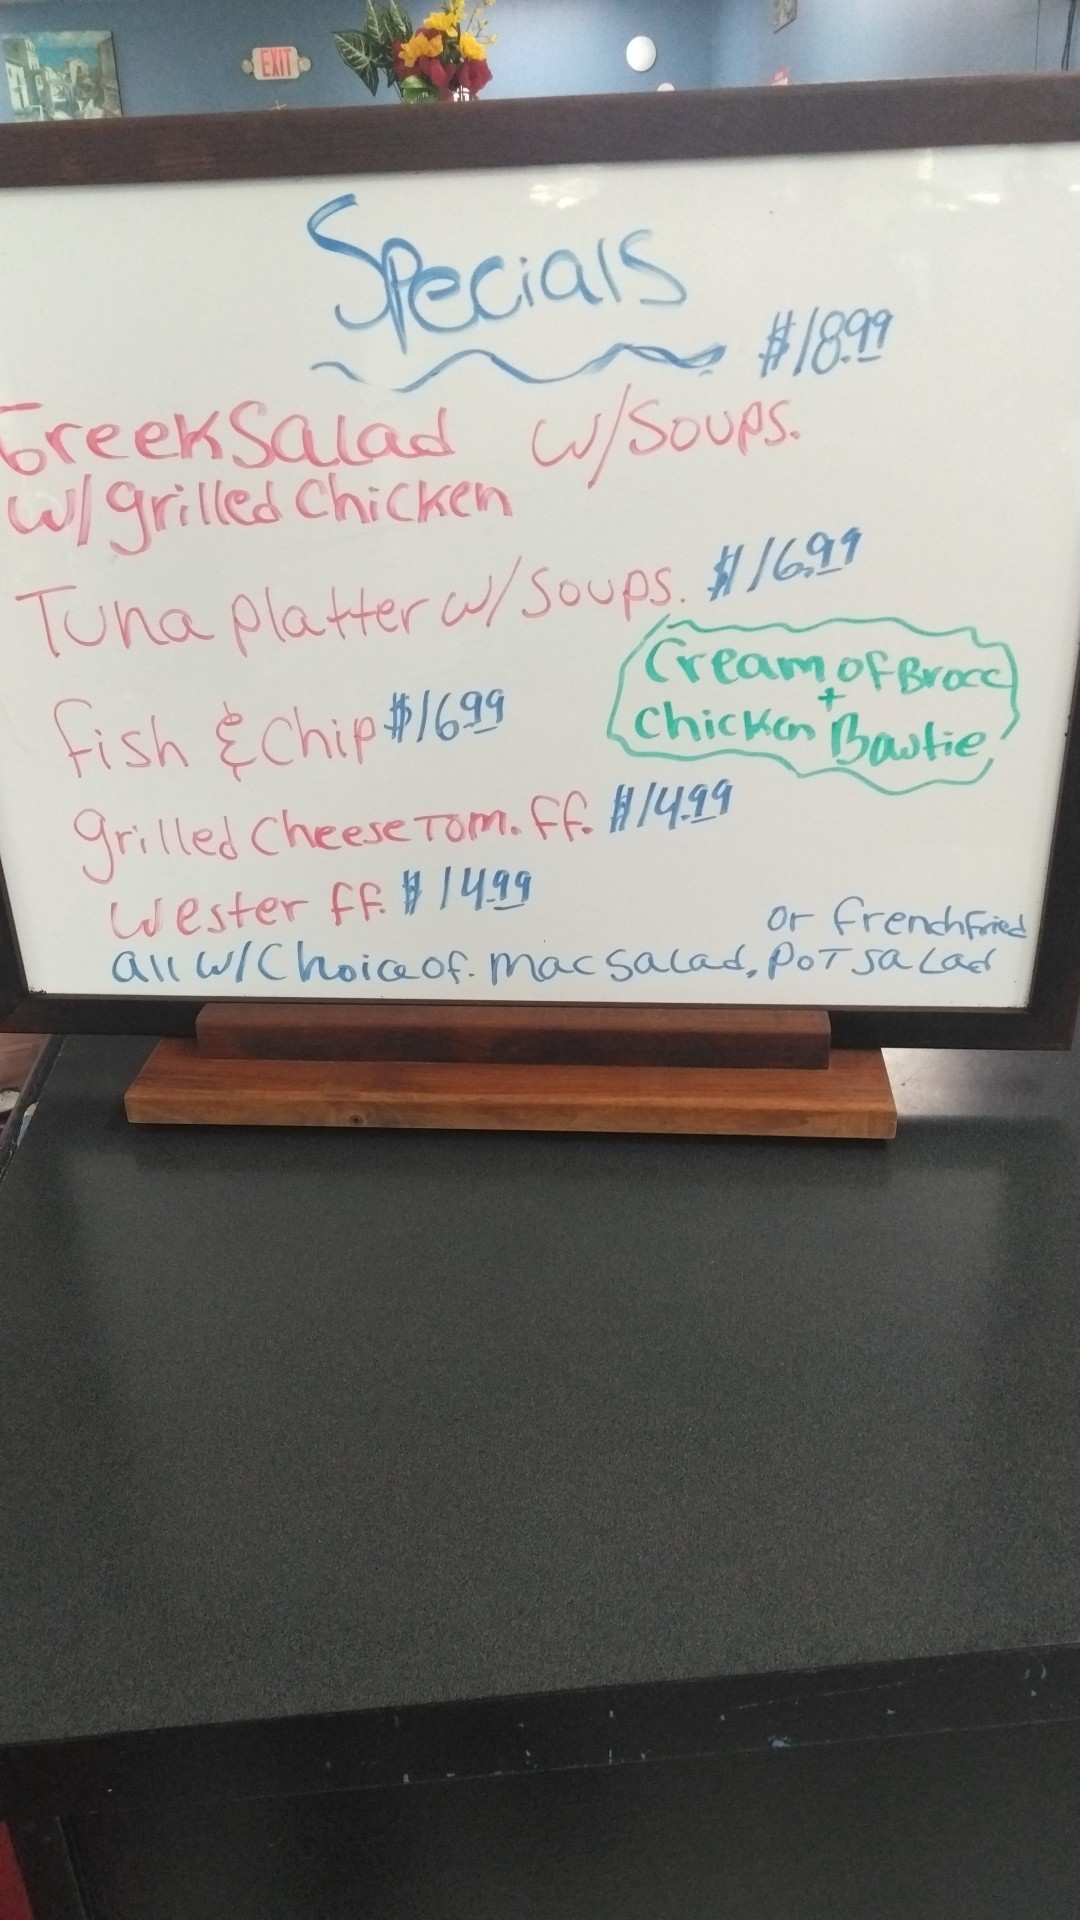 EXIT
Specials
$18.99
Greek Salad w/Soups.
w/grilled Chicken
Tuna Platter w/Soups. $16.99
Cream of Brocc
+
Chicken Bowtie
fish & Chip $16.99
grilled Cheese Tom. ff. $14.99
Wester ff. $14.99
or frenchfried
all w/Choice of. mac salad, Pot salad